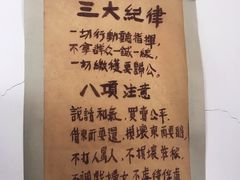 三大纪律
一切行動聽指揮，
不拿群众一針一線，
一切繳獲要歸公。
八項注意
説話和氣，買賣公平，
借來而要還，損壞東西要賠，
不打人罵人，不損壞荘稼，
不調戲婦女，不虐待俘虜